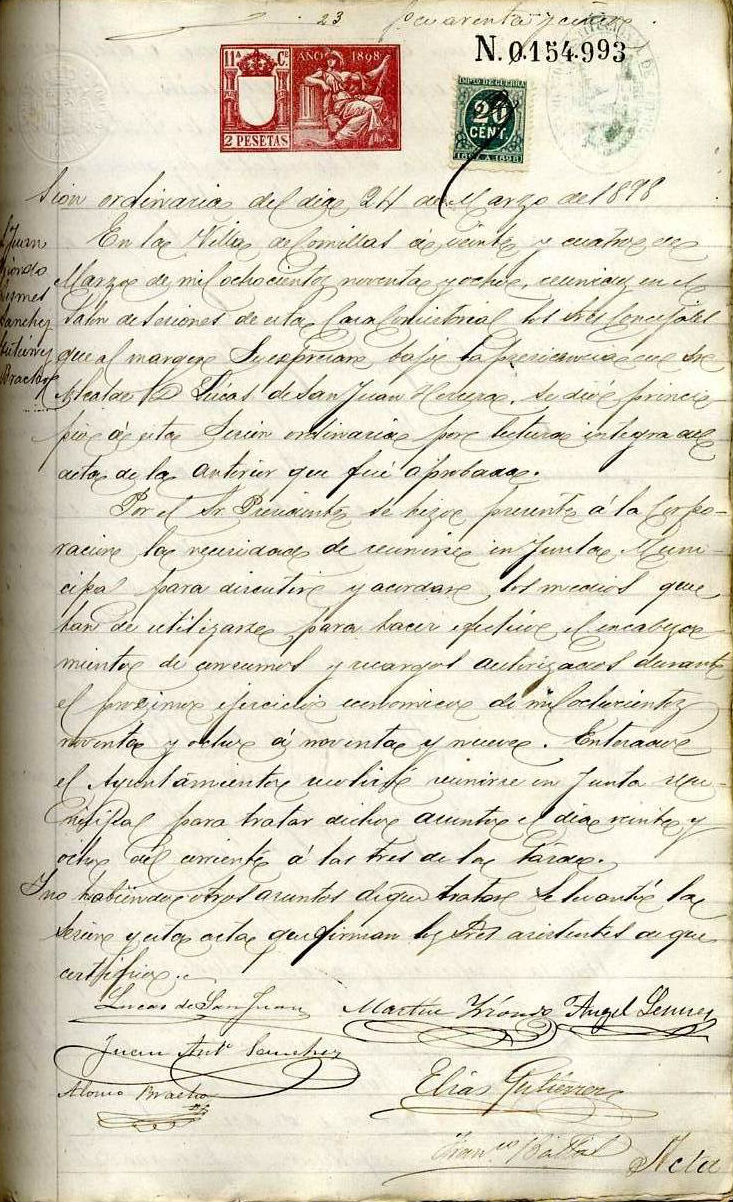 23
N. 0.154.993
11ª Cº AÑO 1898
2 PESETAS
IMPTO DE GUERRA
20
CENT.
1897 A 1898
Sión ordinaria del dia 24 de Marzo de 1898
En la Villa de Comillas á veinte y cuatro de
Marzo de mil ochocientos noventa y ocho, reunidos en el
Salón de Sesiones de esta Casa Consistorial los Sres Concejales
que al margen se expresan bajo la presidencia del Sr
Alcalde D Lucas de San Juan Herrera, se dió princi
pio á esta Sesión ordinaria por lectura integra del
acta de la anterior que fué aprobada.
Por el Sr Presidente se hizo presente á la Corpo-
ración la necesidad de reunirse en Junta Muni-
cipal para discutir y acordar los medios que
han de utilizarse para hacer efectivo el encabeza
miento de consumos y recargos autorizados durante
el proximo ejercicio economico de mil ochocientos
noventa y ocho á noventa y nueve. Enterado
el Ayuntamiento resolvió reunirse en Junta mu-
nicipal para tratar dicho asunto el dia veinte y
ocho del corriente á las tres de la tarde.
Y no habiendo otros asuntos de que tratar se levantó la
Sesión y esta acta que firman los Sres asistentes de que
certifico.
San Juan
Sanchez
Gutierrez
Lucas de San Juan Martin Yñondo Angel
Juan Antº Sanchez
Elias Gutiérrez
Alonso
Acta